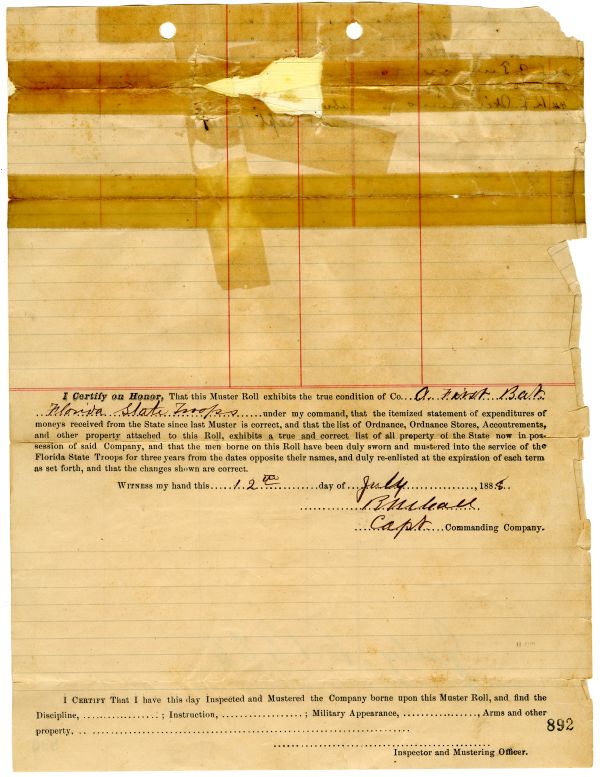 I Certify on Honor, That this Muster Roll exhibits the true condition of Co. A. First Bat.
Florida State Troops under my command, that the itemized statement of expenditures of
moneys received from the State since last Muster is correct, and that the list of Ordnance, Ordnance Stores, Accoutrements,
and other property attached to this Roll, exhibits a true and correct list of all property of the State now in pos-
session of said Company, and that the men borne on this Roll have been duly sworn and mustered into the service of the
Florida State Troops for three years from the dates opposite their names, and duly re-enlisted at the expiration of each term
as set forth, and that the changes shown are correct.
Witness my hand this 12th day of July, 188
Capt Commanding Company.
I Certify That I have this day Inspected and Mustered the Company borne upon this Muster Roll, and find the
Discipline, ................; Instruction, .................; Military Appearance, ................, Arms and other
property. ..
892
Inspector and Mustering Officer.